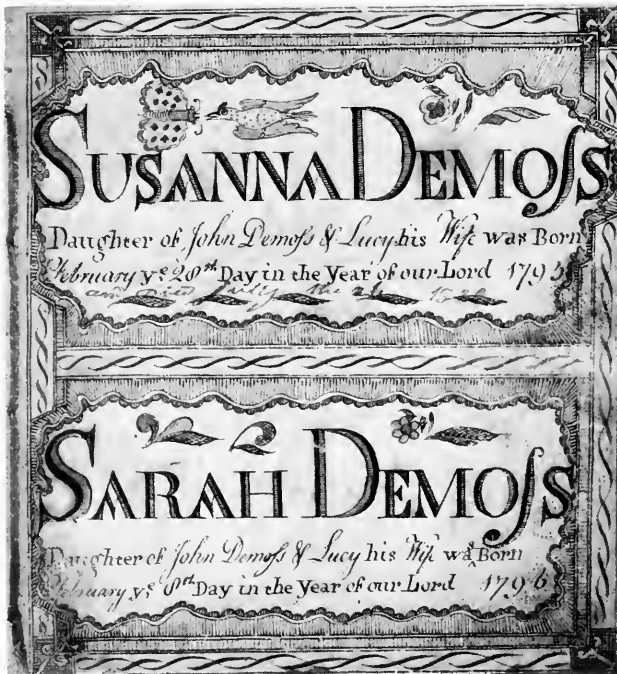 SUSANNA DEMOſS
Daughter of John Demoſs & Lucy his Wife was Born
February yᵉ 28ᵗʰ Day in the Year of our Lord 1795
and Died the
SARAH DEMOſS
Daughter of John Demoſs & Lucy his Wife was Born
February yᵉ 8ᵗʰ Day in the Year of our Lord 1796